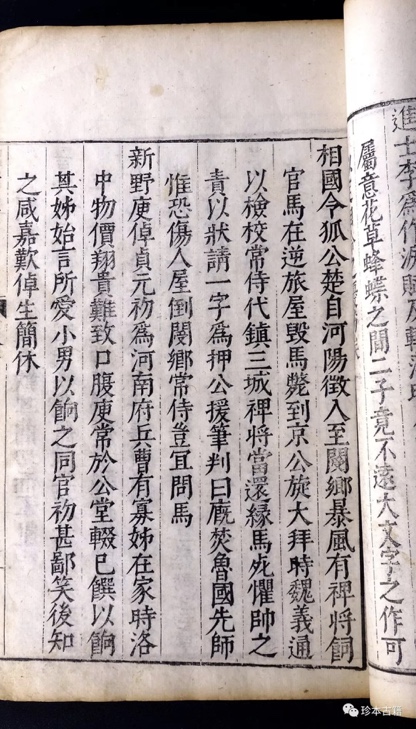 進士李為作淚賦及輕
屬意花草蜂蝶之間二子竟不遠大文字之作可
相國令狐公楚自河陽徵入至閿鄉暴風有裨將飼
官馬在逆旅屋毀馬斃到京公旋大拜時魏義通
以檢校常侍代鎮三城裨將當還緣馬死懼帥之
責以狀請一字為押公援筆判曰廐焚魯國先師
惟恐傷人屋倒閿鄉常侍豈宜問馬
新野庾倬貞元初為河南府兵曹有寡姊在家時洛
中物價翔貴難致口腹庾常於公堂輟己饌以餉
其姊始言所愛小男以餉之同官初甚鄙笑後知
之咸嘉歎倬生簡休
珍本古籍